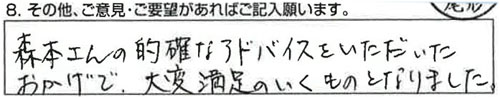 8. その他、ご意見・ご要望があればご記入願います。
尾形
森本さんの的確なアドバイスをいただいた
おかげで、大変満足のいくものとなりました。